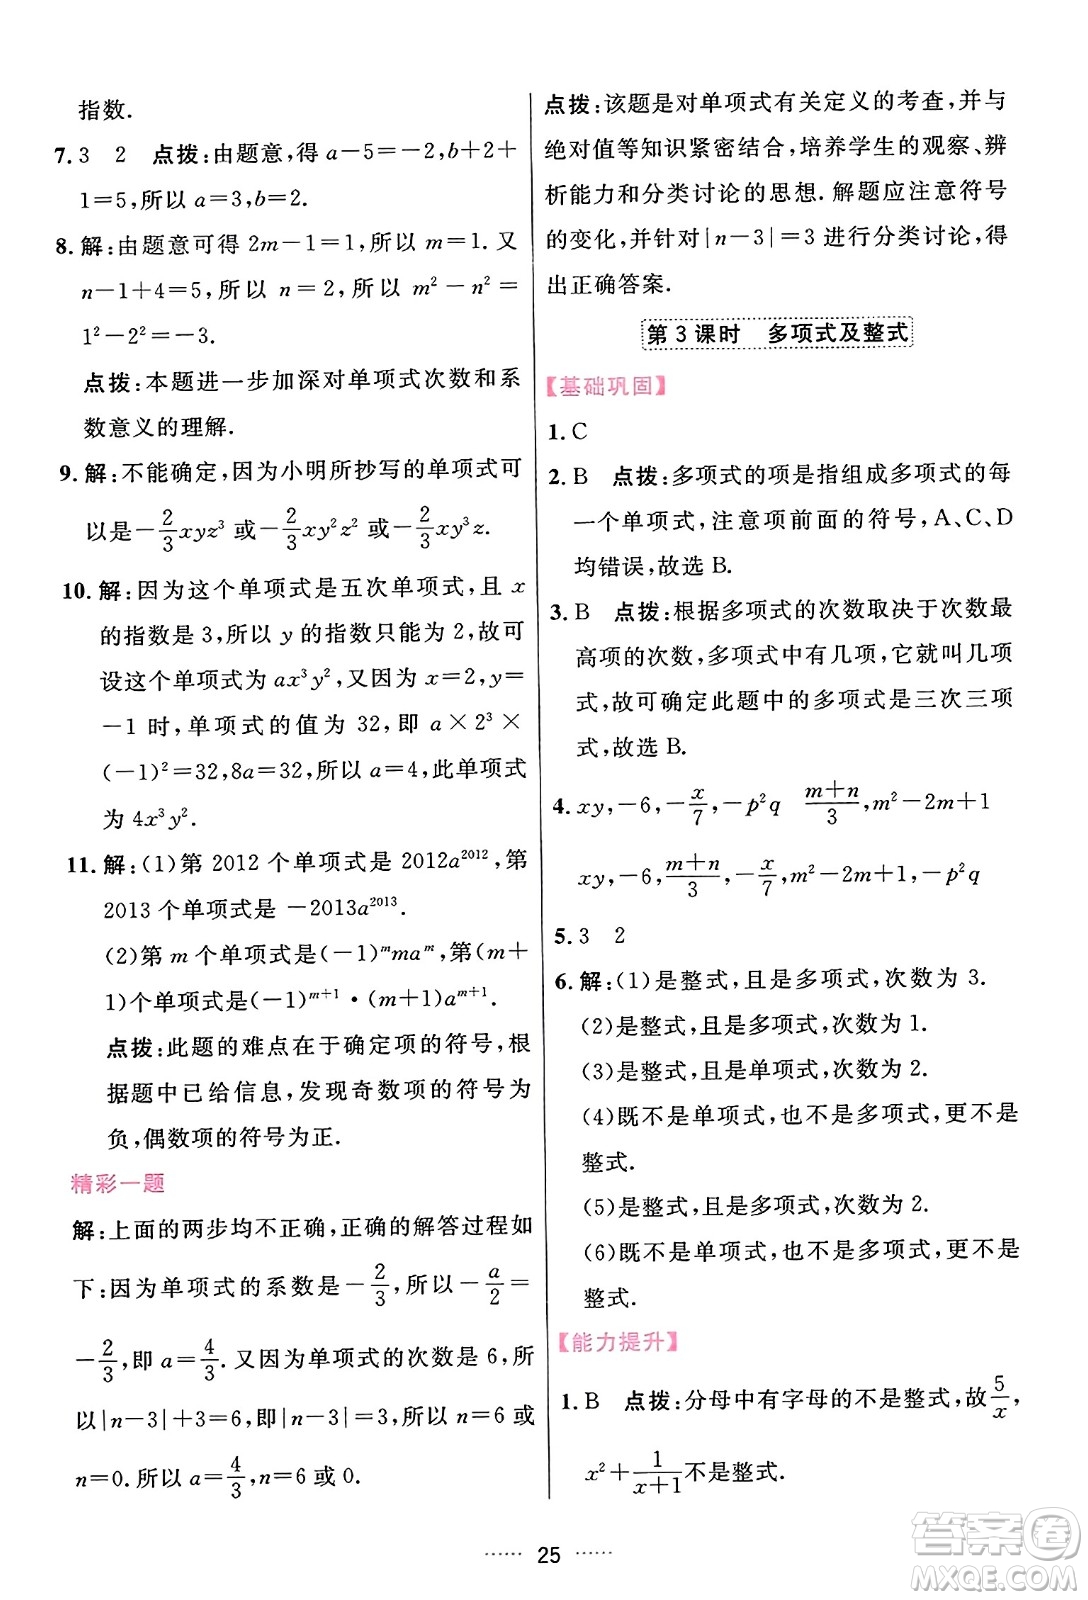 指数.
7. 3　2　点拨:由题意,得 a－5＝－2,b＋2＋
1＝5,所以 a＝3,b＝2.
8. 解:由题意可得 2m－1＝1,所以 m＝1. 又
n－1＋4＝5,所以 n＝2,所以 m²－n²＝
1²－2²＝－3.
点拨:本题进一步加深对单项式次数和系
数意义的理解.
9. 解:不能确定,因为小明所抄写的单项式可
以是－2/3xyz³ 或－2/3xy²z² 或－2/3xy³z.
10. 解:因为这个单项式是五次单项式,且 x
的指数是 3,所以 y 的指数只能为 2,故可
设这个单项式为 ax³y². 因为 x＝2,y＝
－1 时,单项式的值为 32,即 a×2³×
(－1)²＝32,8a＝32,所以 a＝4,此单项式
为 4x³y².
11. 解:(1)第 2012 个单项式是 2012a²⁰¹²,第
2013 个单项式是－2013a²⁰¹³.
(2)第 m 个单项式是(－1)ᵐmaᵐ,第(m＋
1)个单项式是(－1)ᵐ⁺¹•(m＋1)aᵐ⁺¹.
点拨:此题的难点在于确定项的符号,根
据题中已给信息,发现奇数项的符号为
负,偶数项的符号为正.
精彩一题
解:上面的两步均不正确,正确的解答过程如
下:因为单项式的系数是－2/3,所以－a/2＝
－2/3,即 a＝4/3. 又因为单项式的次数是 6,所
以|n－3|＋3＝6,即|n－3|＝3,所以 n＝6 或
n＝0. 所以 a＝4/3,n＝6 或 0.
点拨:该题是对单项式有关定义的考查,并与
绝对值等知识紧密结合,培养学生的观察、辨
析能力和分类讨论的思想. 解题应注意符号
的变化,并针对|n－3|＝3 进行分类讨论,得
出正确答案.
第 3 课时　多项式及整式
【基础巩固】
1. C
2. B　点拨:多项式的项是指组成多项式的每
一个单项式,注意项前面的符号,A、C、D
均错误,故选 B.
3. B　点拨:根据多项式的次数取决于次数最
高项的次数,多项式中有几项,它就叫几项
式,故可确定此题中的多项式是三次三项
式,故选 B.
4. xy,－6,－x/7,－p²q　(m＋n)/3,m²－2m＋1
xy,－6,(m＋n)/3,－x/7,m²－2m＋1,－p²q
5. 3　2
6. 解:(1)是整式,且是多项式,次数为 3.
(2)是整式,且是多项式,次数为 1.
(3)是整式,且是单项式,次数为 2.
(4)既不是单项式,也不是多项式,更不是
整式.
(5)是整式,且是多项式,次数为 2.
(6)既不是单项式,也不是多项式,更不是
整式.
【能力提升】
1. B　点拨:分母中有字母的不是整式,故5/x,
x²＋1/(x＋1)不是整式.
25
答案圈
MXQE.COM